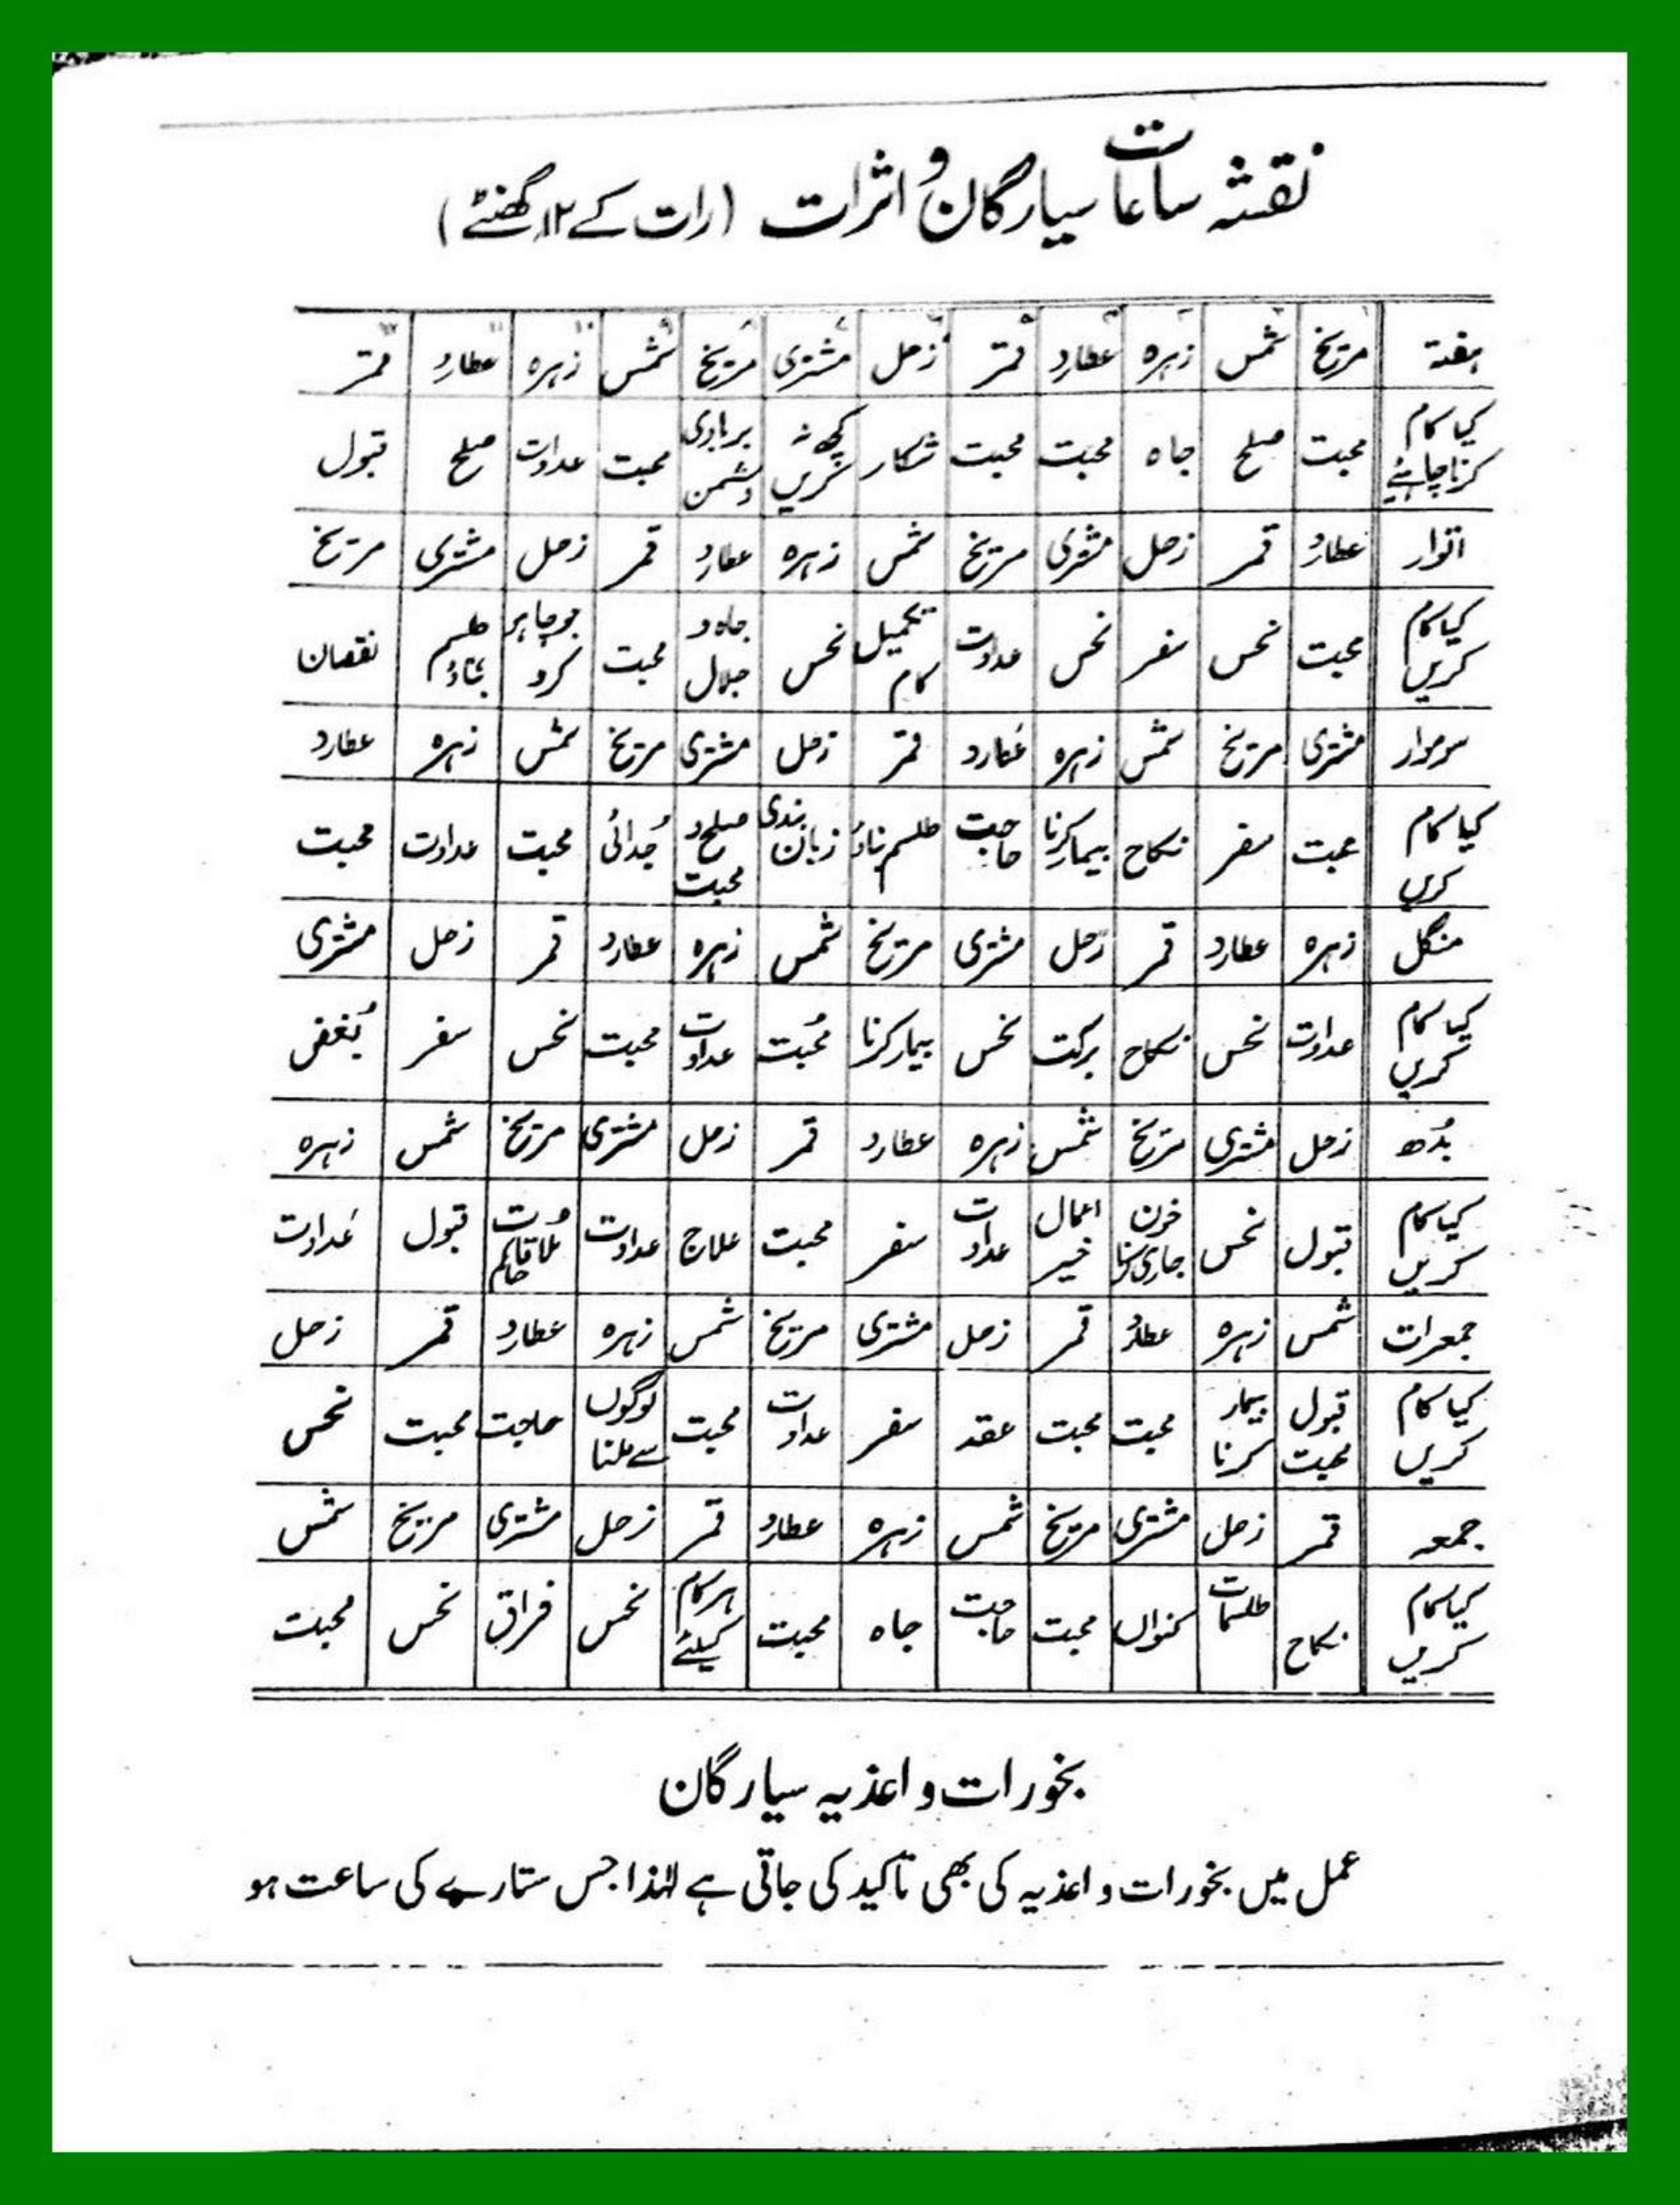 نقشہ ساعات سیارگان و اثرات (رات کے ۱۲ گھنٹے)
ہفتہ مریخ شمس زہرہ عطارد قمر زحل مشتری مریخ شمس زہرہ عطارد قمر
کیا کام کرنا چاہیئے محبت صلح جاہ محبت محبت شکار کچھ نہ کریں بربادی دشمن محبت عداوت صلح قبول
اتوار عطارد قمر زحل مشتری مریخ شمس زہرہ عطارد قمر زحل مشتری مریخ
کیا کام کریں محبت نحس سفر نحس عداوت تکمیل کام نحس جاہ و جلال محبت جو چاہو کرو طلسم بناؤ نقصان
سوموار مشتری مریخ شمس زہرہ عطارد قمر زحل مشتری مریخ شمس زہرہ عطارد
کیا کام کریں محبت سفر نکاح بیمار کرنا حاجت طلسم بناؤ زبان بندی صلح و محبت جُدائی محبت عداوت محبت
منگل زہرہ عطارد قمر زحل مشتری مریخ شمس زہرہ عطارد قمر زحل مشتری
کیا کام کریں عداوت نحس نکاح برکت نحس بیمار کرنا محبت عداوت محبت نحس سفر بُغض
بُدھ زحل مشتری مریخ شمس زہرہ عطارد قمر زحل مشتری مریخ شمس زہرہ
کیا کام کریں قبول نحس خون جاری کرنا اعمال خیر عداوت سفر محبت علاج عداوت ملاقات حاکم قبول عداوت
جمعرات شمس زہرہ عطارد قمر زحل مشتری مریخ شمس زہرہ عطارد قمر زحل
کیا کام کریں قبول محبت بیمار کرنا محبت محبت عقد سفر عداوت محبت لوگوں سے ملنا حاجت محبت نحس
جمعہ قمر زحل مشتری مریخ شمس زہرہ عطارد قمر زحل مشتری مریخ شمس
کیا کام کریں نکاح طلسمات کنواں محبت حاجت جاہ محبت ہر کام کیلئے نحس فراق نحس محبت
بخورات و اغذیہ سیارگان
عمل میں بخورات و اغذیہ کی بھی تاکید کی جاتی ہے لہٰذا جس ستارے کی ساعت ہو